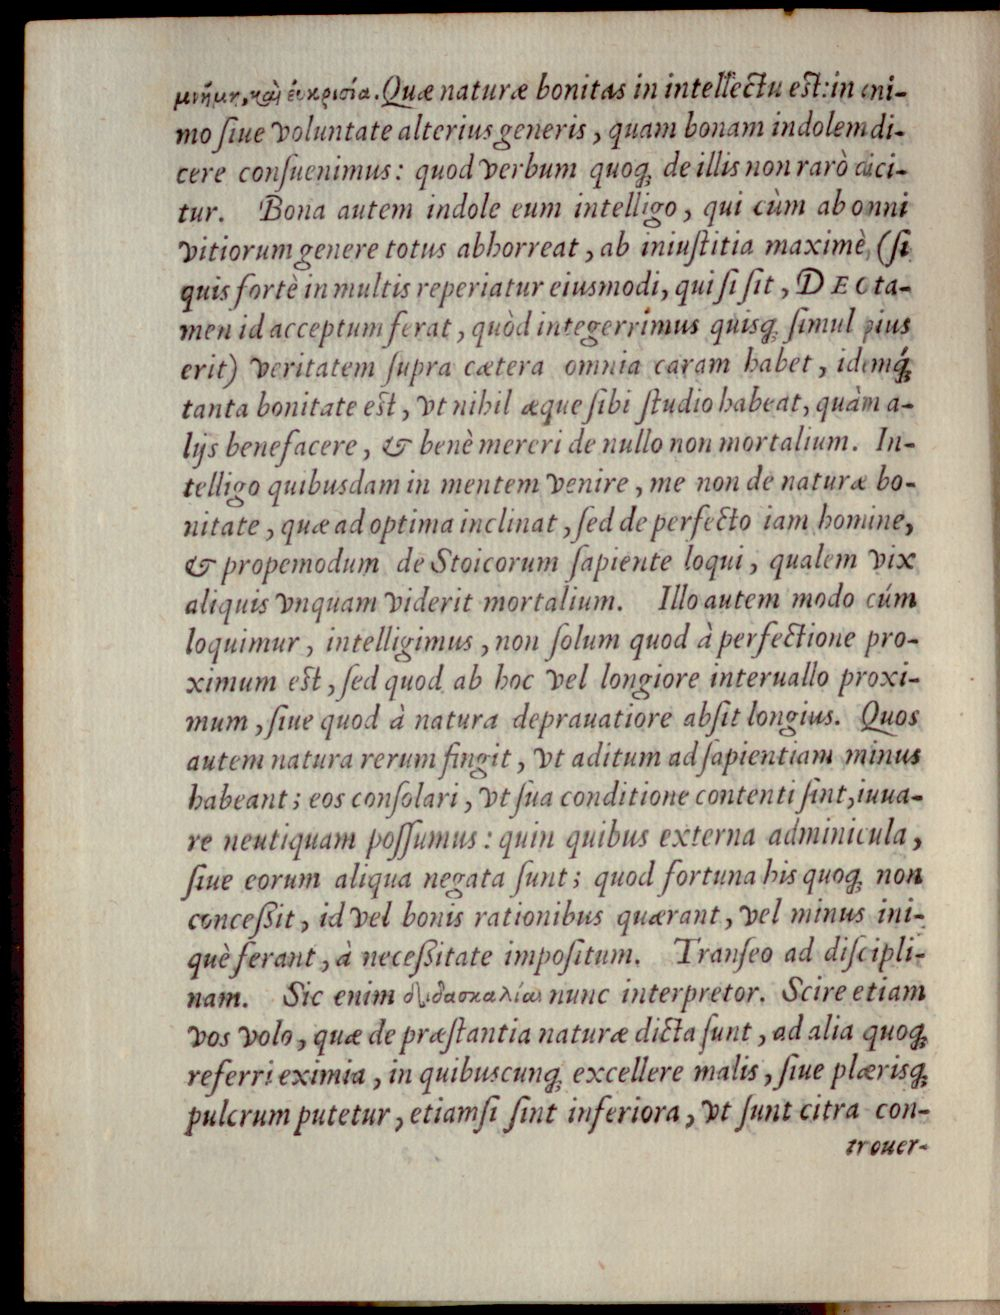 μνήμη, καὶ εὐκρισία. Quæ naturæ bonitas in intellectu est: in ani-
mo ſiue voluntate alterius generis, quam bonam indolem di-
cere conſueuimus: quod verbum quoq; de illis non rarò dici-
tur. Bona autem indole eum intelligo, qui cùm ab omni
vitiorum genere totus abhorreat, ab iniuſtitia maximè, (ſi
quis fortè in multis reperiatur eiusmodi, qui ſi ſit, DEO ta-
men id acceptum ferat, quòd integerrimus quisq; ſimul pius
erit) veritatem ſupra cætera omnia caram habet, idemq́;
tanta bonitate eſt, vt nihil æque ſibi ſtudio habeat, quàm a-
lijs benefacere, & benè mereri de nullo non mortalium. In-
telligo quibusdam in mentem venire, me non de naturæ bo-
nitate, quæ ad optima inclinat, ſed de perfecto iam homine,
& propemodum de Stoicorum ſapiente loqui, qualem vix
aliquis vnquam viderit mortalium. Illo autem modo cúm
loquimur, intelligimus, non ſolum quod à perfectione pro-
ximum eſt, ſed quod ab hoc vel longiore interuallo proxi-
mum, ſiue quod à natura deprauatiore abſit longius. Quos
autem natura rerum fingit, vt aditum ad ſapientiam minus
habeant; eos conſolari, vt ſua conditione contenti ſint, iuua-
re neutiquam poſſumus: quin quibus externa adminicula,
ſiue eorum aliqua negata ſunt; quod fortuna his quoq; non
conceßit, id vel bonis rationibus quærant, vel minus ini-
què ferant, à neceßitate impoſitum. Tranſeo ad diſcipli-
nam. Sic enim διδασκαλίαν nunc interpretor. Scire etiam
vos volo, quæ de præſtantia naturæ dicta ſunt, ad alia quoq;
referri eximia, in quibuscunq; excellere malis, ſiue plærisq;
pulcrum putetur, etiamſi ſint inferiora, vt ſunt citra con-
trouer-